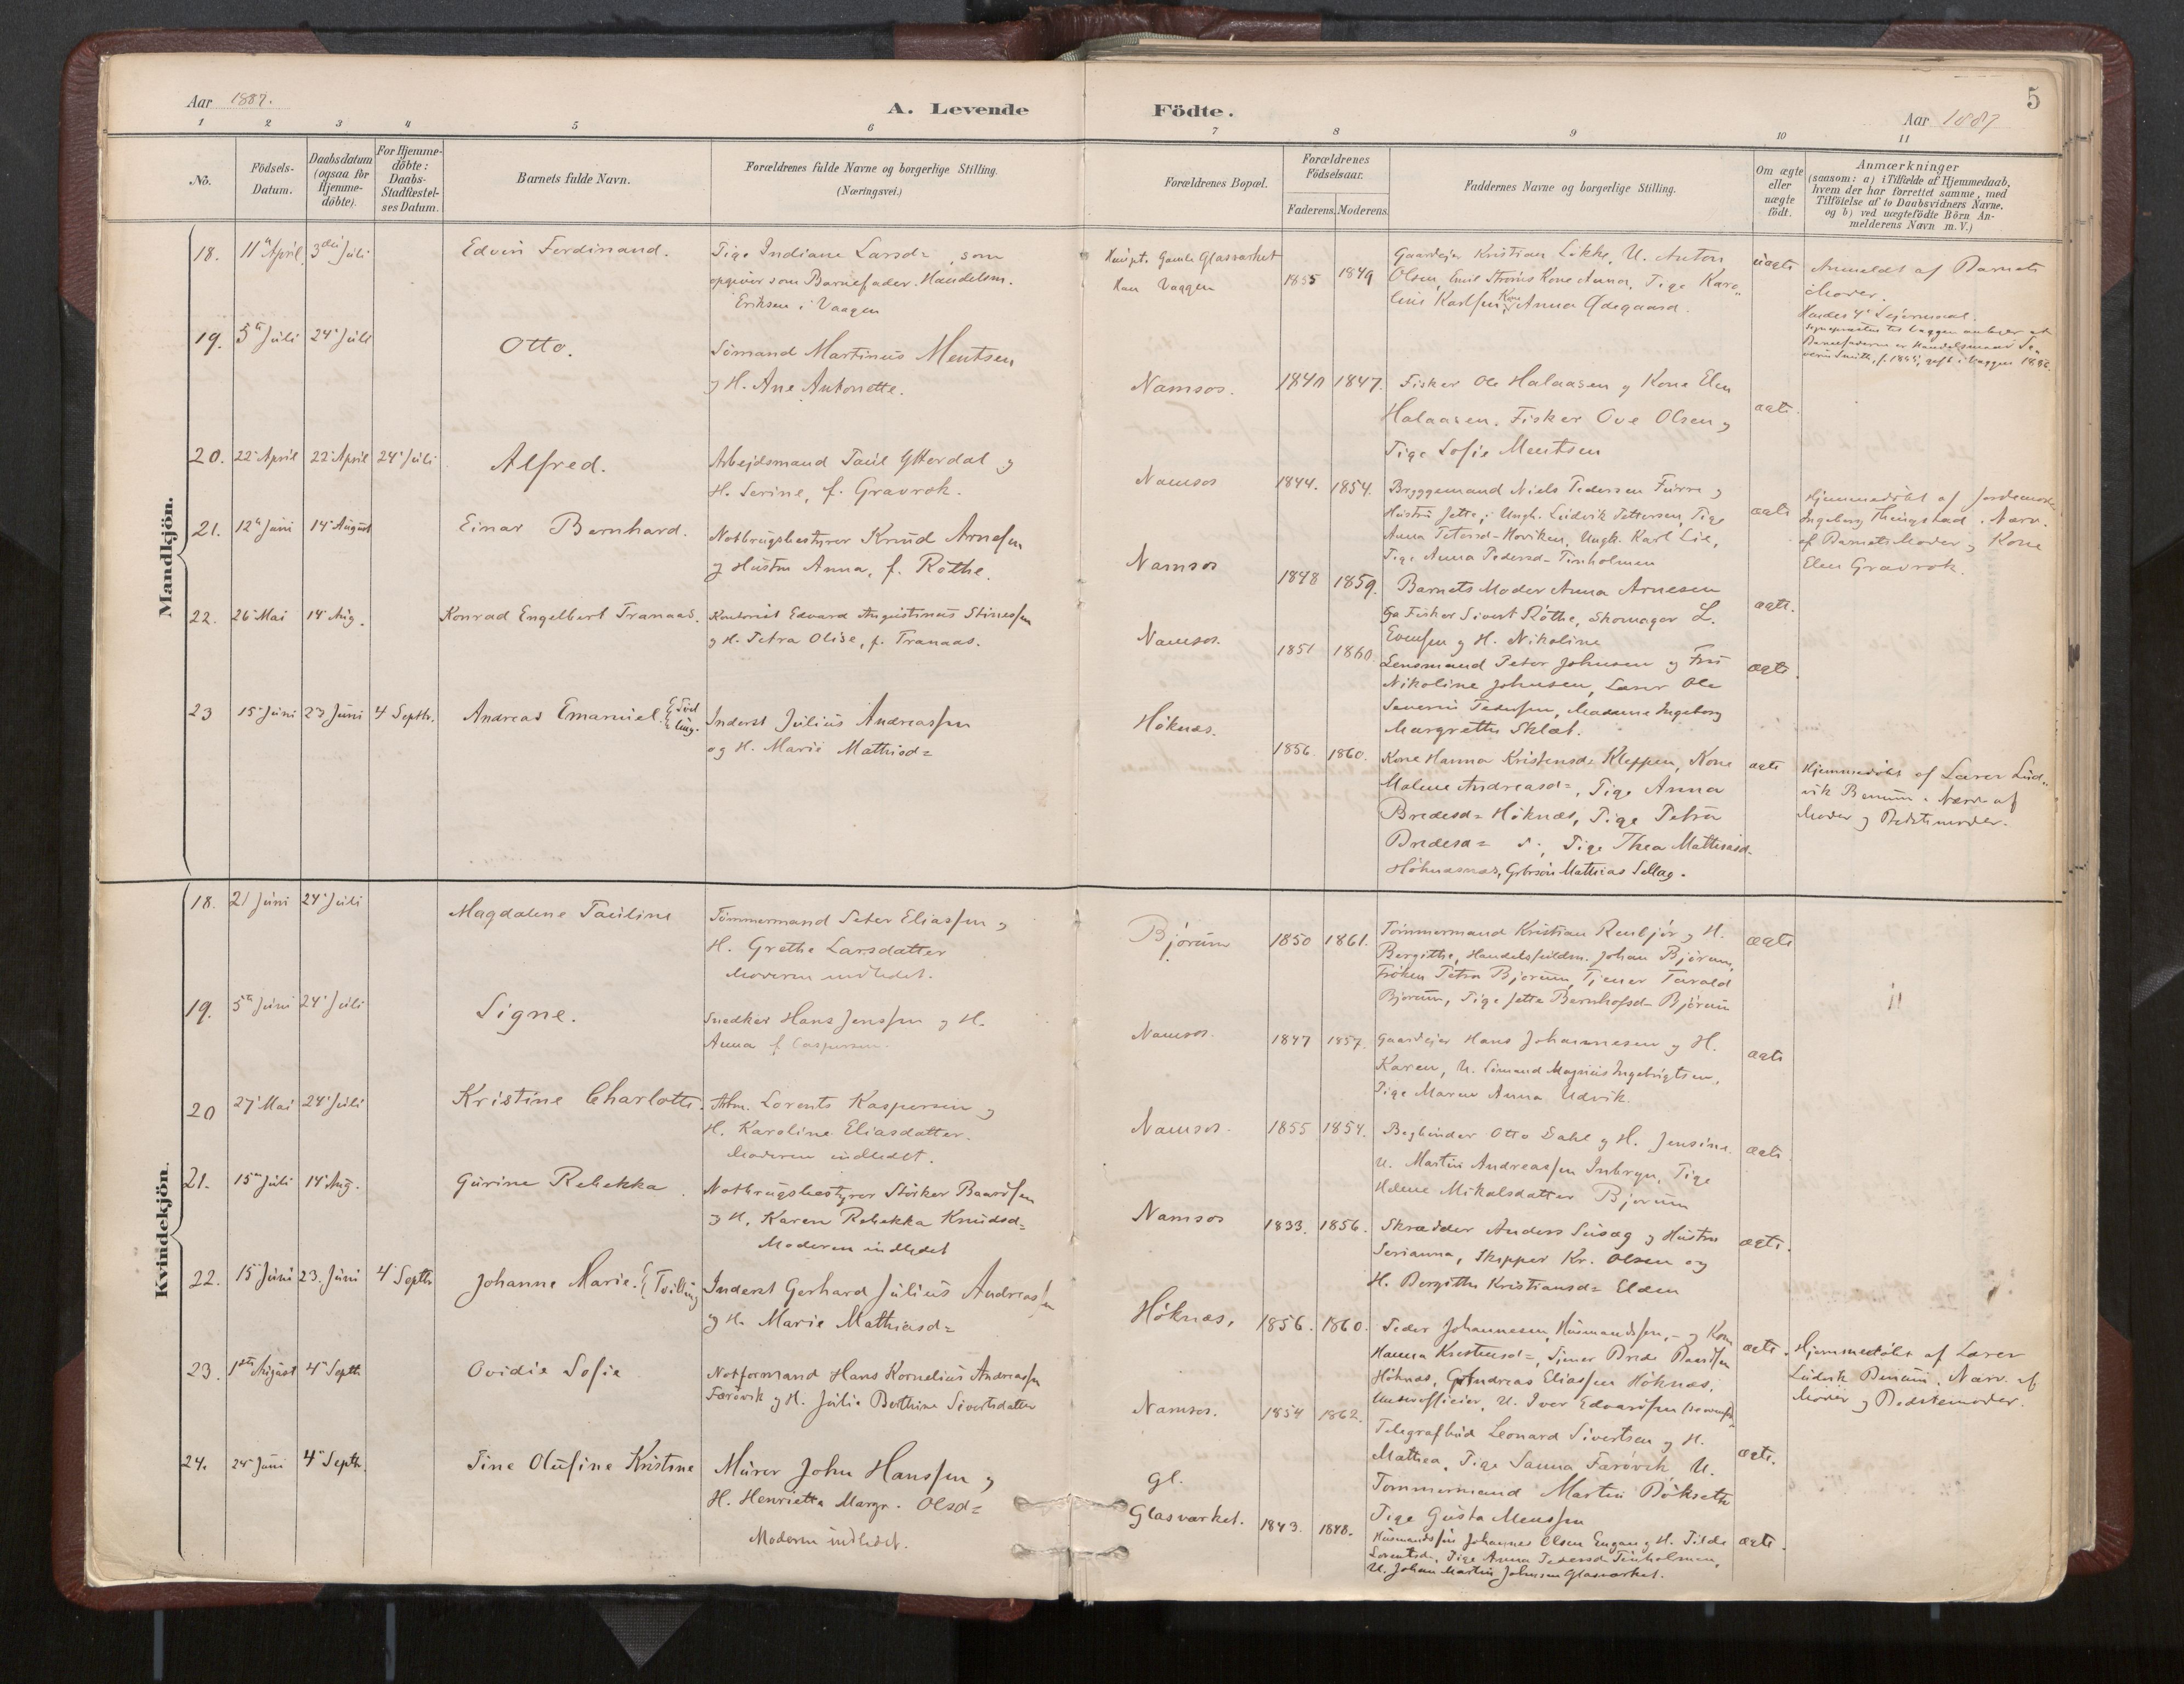 Aar 1887.
A. Levende
Födte.
5
Aar 1887
1 2 3 4 5 6 7 8 9 10 11
No.
Födsels-
Datum.
Daabsdatum
(ogsaa for
Hjemme-
döbte).
For Hjemme-
döbte:
Daabs-
Stadfæstel-
ses Datum.
Barnets fulde Navn.
Forældrenes fulde Navne og borgerlige Stilling.
(Næringsvei.)
Forældrenes Bopæl.
Forældrenes
Födselsaar.
Faderens. Moderens.
Faddernes Navne og borgerlige Stilling.
Om ægte
eller
uægte
født.
Anmærkninger
(saasom: a) i Tilfælde af Hjemmedaab,
hvem der har forrettet samme, med
Tilföielse af to Daabsvidners Navne.
og b) ved uægtefödte Börn An-
melderens Navn m. V.)
Mandkjön.
18. 11 April 3die Juli Edvin Ferdinand.
Pige Indiane Larsd=, som
opgiver som Barnefader Handelsm.
Eriksen i Vaagen
Gamle Glasværket
Vaagen
1855 1849
Gaardejer Kristian Likke, U. Anton
Olsen, Emil Ströms Kone Anna, Pige Karo-
line Karlsen Kone Anna Ødegaard.
uægte
Anmeldt af Barnets
Moder.
19. 5te Juli 24 Juli Otto.
Sömand Martinus Mentsen
og H. Ane Antonette.
Namsos. 1847.
Fisker Ole Halaasen og Kone Elen
Halaasen, Fisker Ove Olsen og
Pige Sofie Mentsen
ægte.
20. 22 April 22 April 24 Juli Alfred.
Arbejdsmand Paul Ytterdal og
H. Serine, f. Gravrok.
Namsos 1844. 1854.
Bryggemand Niels Pedersen Furre og
Hustru Jette, Ungk. Ludvik Pettersen, Pige
Anna Petersd- Hoviken, Ungk. Karl Lie,
Pige Anna Pedersd- Tinholmen
ægte
Hjemmedöbt af Jordemoder
Ingeborg Thingstad. Nærv.
af Barnets Moder og Kone
Elen Gravrok.
21. 12te Juni 14 August Einar Bernhard.
Notbrugsbestyrer Knud Arnesen
og Hustru Anna, f. Röthe.
Namsos 1848 1859.
Barnets Moder Anna Arnesen
Fisker Sivert Röthe, Skomager L.
Evensen og H. Nikoline
ægte.
22. 26 Mai 14 Aug. Konrad Engelbert Tranaas.
Kontorist Edvard Augustinus Stinessen
og H. Petra Olise, f. Tranaas.
Namsos. 1851 1860.
Lensmand Peter Johnsen og Fru
Nikoline Johnsen, Lærer Ole
Severin Pedersen, Madame Ingeborg
Margrethe Sklæt.
ægte.
23 15 Juni 23 Juni 4 Septb. Andreas Emanuel.
Inderst Julius Andreassen
og H. Marie Mathisd=
Höknæs. 1856. 1860.
Kone Hanna Kristensd= Kleppen, Kone
Malene Andreasd=, Pige Anna
Bredesd= Höknæs, Pige Petra
Bredesd= s., Pige Thea Mathiasd-
Höknæsnæs, Grbrsön Mathias Sellæg.
ægte
Hjemmedöbt af Lærer Lud-
vik Benum. Nærv. af
Moder og Bedstemoder.
Kvindekjön.
18. 21 Juni 24 Juli Magdalene Pauline
Tömmermand Peter Eliassen og
H. Grethe Larsdatter
Moderen indledet.
Bjorum 1850 1861.
Tömmermand Kristian Renbjör og H.
Bergithe, Handelsfuldm. Johan Bjorum,
Fröken Petra Bjorum, Tjener Tarald
Bjorum, Pige Jette Bernhofsd- Bjorum
ægte
19. 5te Juni 24 Juli Signe.
Snedker Hans Jenssen og H.
Anna f. Caspersen.
Namsos. 1847 1857.
Gaardejer Hans Johannesen og H.
Karen, U. Sömand Magnus Ingebrigtsen,
Pige Maren Anna Udvik.
ægte
20 27 Mai 24 Juli Kristine Charlotte.
Arbm. Lorents Kaspersen og
H. Karoline Eliasdatter.
Moderen indledet.
Namsos. 1855 1854.
Bogbinder Otto Dahl og H. Jensine.
U. Martin Andreassen Inbryn, Pige
Helene Mikalsdatter Bjorum
ægte
21. 15 Juli 14 Aug. Gurine Rebekka.
Notbrugsbestyrer Störker Baardsen
og H. Karen Rebekka Knudsd=
Moderen indledet
Namsos 1833. 1856.
Skrædder Anders Susæg og Hustru
Serianna, Skipper Kr. Olsen og
H. Bergithe Kristiansd= Elden
ægte.
22. 15 Juni 23. Juni 4 Septb Johanne Marie. Tvilling
Inderst Gerhard Julius Andreassen
og H. Marie Mathiasd=
Höknæs. 1856. 1860.
Peder Johannesen, Husmandssen, og Kone
Hanna Kristensd=, Tjener Brede Baardsen
Höknæs, Andreas Eliassen Höknæs,
Underofficier, U. Iver Edvardsen
ægte.
Hjemmedöbt af Lærer
Ludvik Benum. Nærv. af
Moder og Bedstemoder.
23. 1ste August 4 Septb Ovidie Sofie
Notformand Hans Kornelius Andreassen
Færövik og H. Julie Berthine Sivertsdatter
Namsos. 1854 1862.
Telegrafbud Leonard Sivertsen og H.
Mathea, Pige Sanna Færövik U.
Tommermand Martin Bökseth
Pige Gusta Menssen
ægte.
24. 24 Juni 4 Septb. Tine Olufine Kristine
Murer John Hanssen og
H. Henrietta Margr. Olsd=
Moderen indledet.
Gl.
Glasværket. 1843. 1848.
Husmandssen Johannes Olsen Engan og H. Tilde
Lorentsd-, Pige Anna Pedersd Tinholmen,
U. Johan Martin Johnsen Glasværket.
ægte.